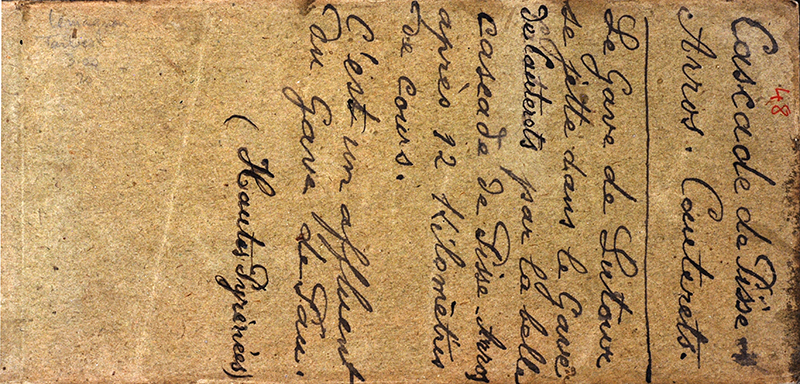 48
Cascade de Pisse
Arros. Cauterets.
Le Gave de Lutour
se jette dans le Gave
de Cauterets par la belle
cascade de Pisse-Arros
après 12 Kilomètres
de cours.
C'est un affluent
du Gave de Pau.
(Hautes Pyrénées)